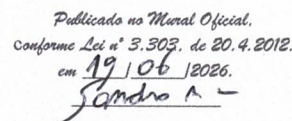 Publicado no Mural Oficial,
Conforme Lei nº 3.303, de 20.4.2012.
em 19 / 06 /2026.
Sandro